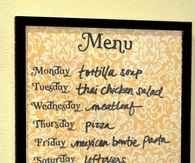 Menu
Monday tortilla soup
Tuesday thai chicken salad
Wednesday meatloaf
Thursday pizza
Friday mexican bowtie pasta
Saturday leftovers